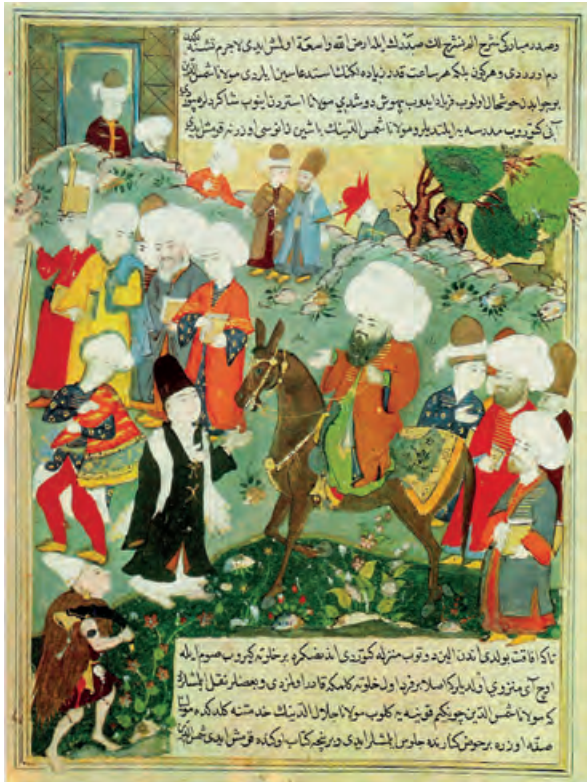 وصدر مباركی شرح الم نشرح لك صدرك ایله ارض الله واسعة اولمش ایدی لاجرم تشنه
دم اوردی و هر كون بلكه هر ساعت قدرن زیاده لكك استدعاسین ایلردی مولانا شمس الدین
بو جوابدن خوشحال اولوب فریاد ایدوب بیهوش دوشدی مولانا استردن اینوب شاكردلره بیوردی
آنی كوتروب مدرسه یه ایلتدیلر و مولانا شمس الدینك باشین زانوسی اوزرنه قومش ایدی
تاكه افاقت بولدی اندن الین دوتوب منزله كوتوردی اندنصكره بر خلوته كیروب صوم ایله
اوچ آی منزوی اولدیلر كه اصلا بر فرد اول خلوته كلمكه قادر اولمزدی و بعضلر نقل ایلمشلر
كه مولانا شمس الدین چونكم قونیه یه كلوب مولانا جلال الدینك خدمتنه كلدكده مولانا
صفه اوزره بر حوض كنارنده جلوس ایلمشلر ایدی و بر نیچه كتاب اوكنده قومش ایدی شمس الدین